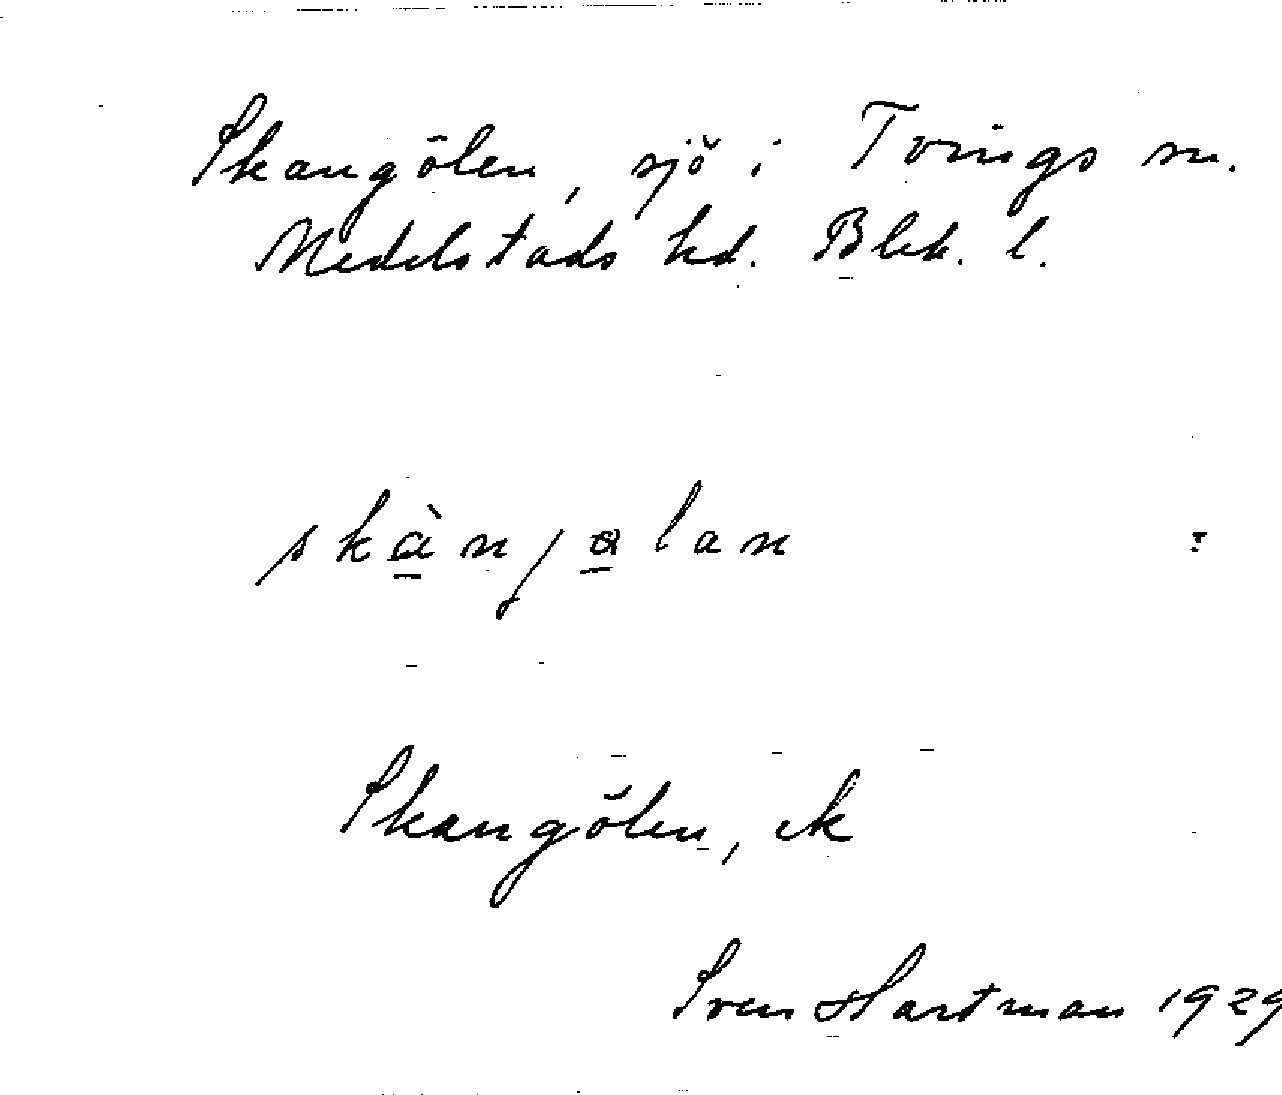 Skangölen, sjö i Tvings sn.
Medelstads hd. Blek. l.
skànjalan
Skangölen, ek
Sven Hartman 1929